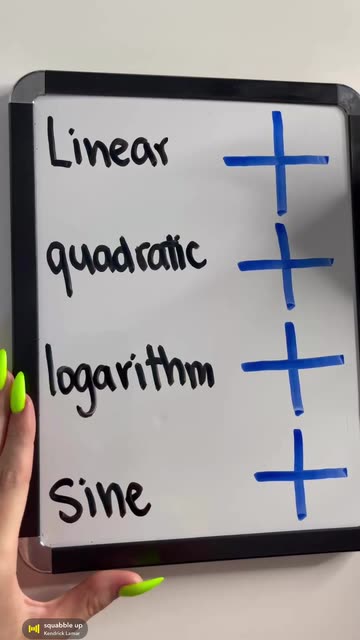 Linear
quadratic
logarithm
sine
squabble up
Kendrick Lamar